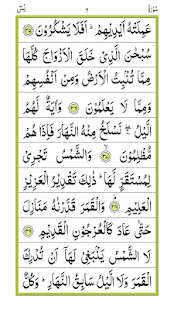 سُوْرَةُ ٦ يٰسٓ
عَمِلَتْهُ اَيْدِيْهِمْ ؕ اَفَلَا يَشْكُرُوْنَ ﴿۳۵﴾
سُبْحٰنَ الَّذِيْ خَلَقَ الْاَزْوَاجَ كُلَّهَا
مِمَّا تُنْۢبِتُ الْاَرْضُ وَمِنْ اَنْفُسِهِمْ
وَمِمَّا لَا يَعْلَمُوْنَ ﴿۳۶﴾ وَاٰيَةٌ لَّهُمُ
الَّيْلُ ۖۚ نَسْلَخُ مِنْهُ النَّهَارَ فَاِذَا هُمْ
مُّظْلِمُوْنَ ﴿۳۷﴾ وَالشَّمْسُ تَجْرِيْ
لِمُسْتَقَرٍّ لَّهَا ؕ ذٰلِكَ تَقْدِيْرُ الْعَزِيْزِ
الْعَلِيْمِ ﴿۳۸﴾ وَالْقَمَرَ قَدَّرْنٰهُ مَنَازِلَ
حَتّٰى عَادَ كَالْعُرْجُوْنِ الْقَدِيْمِ ﴿۳۹﴾
لَا الشَّمْسُ يَنْۢبَغِيْ لَهَاۤ اَنْ تُدْرِكَ
الْقَمَرَ وَلَا الَّيْلُ سَابِقُ النَّهَارِ ؕ وَكُلٌّ